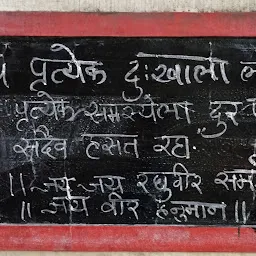 प्रत्येक दुःखाला
प्रत्येक समस्येला दुर
सदैव हसत रहा.
।। जय जय रघुवीर सम
।। जय वीर हनुमान ।।